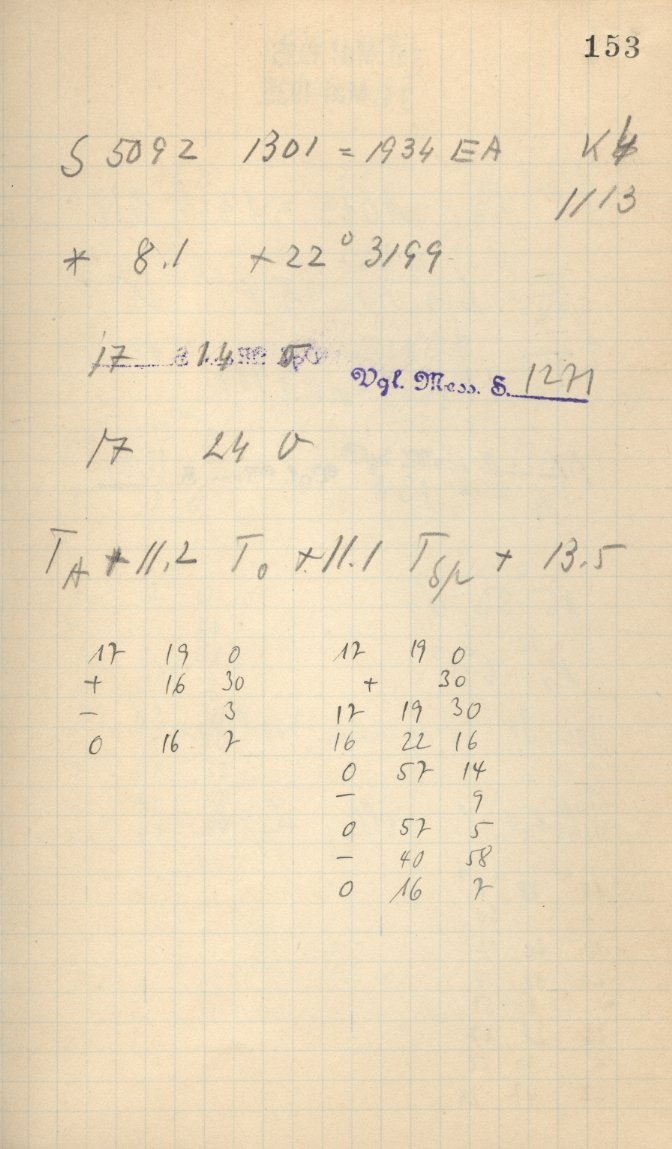 153
S 5092 1301 = 1934 EA K4
1113
* 8.1 +22° 3199
17 14 0
Vgl. Mess. S. 1271
17 24 0
T_A + 11.2 T_0 + 11.1 T_δμ + 13.5
17 19 0 17 19 0
+ 16 30 + 30
− 3 17 19 30
0 16 7 16 22 16
0 57 14
− 9
0 57 5
− 40 58
0 16 7